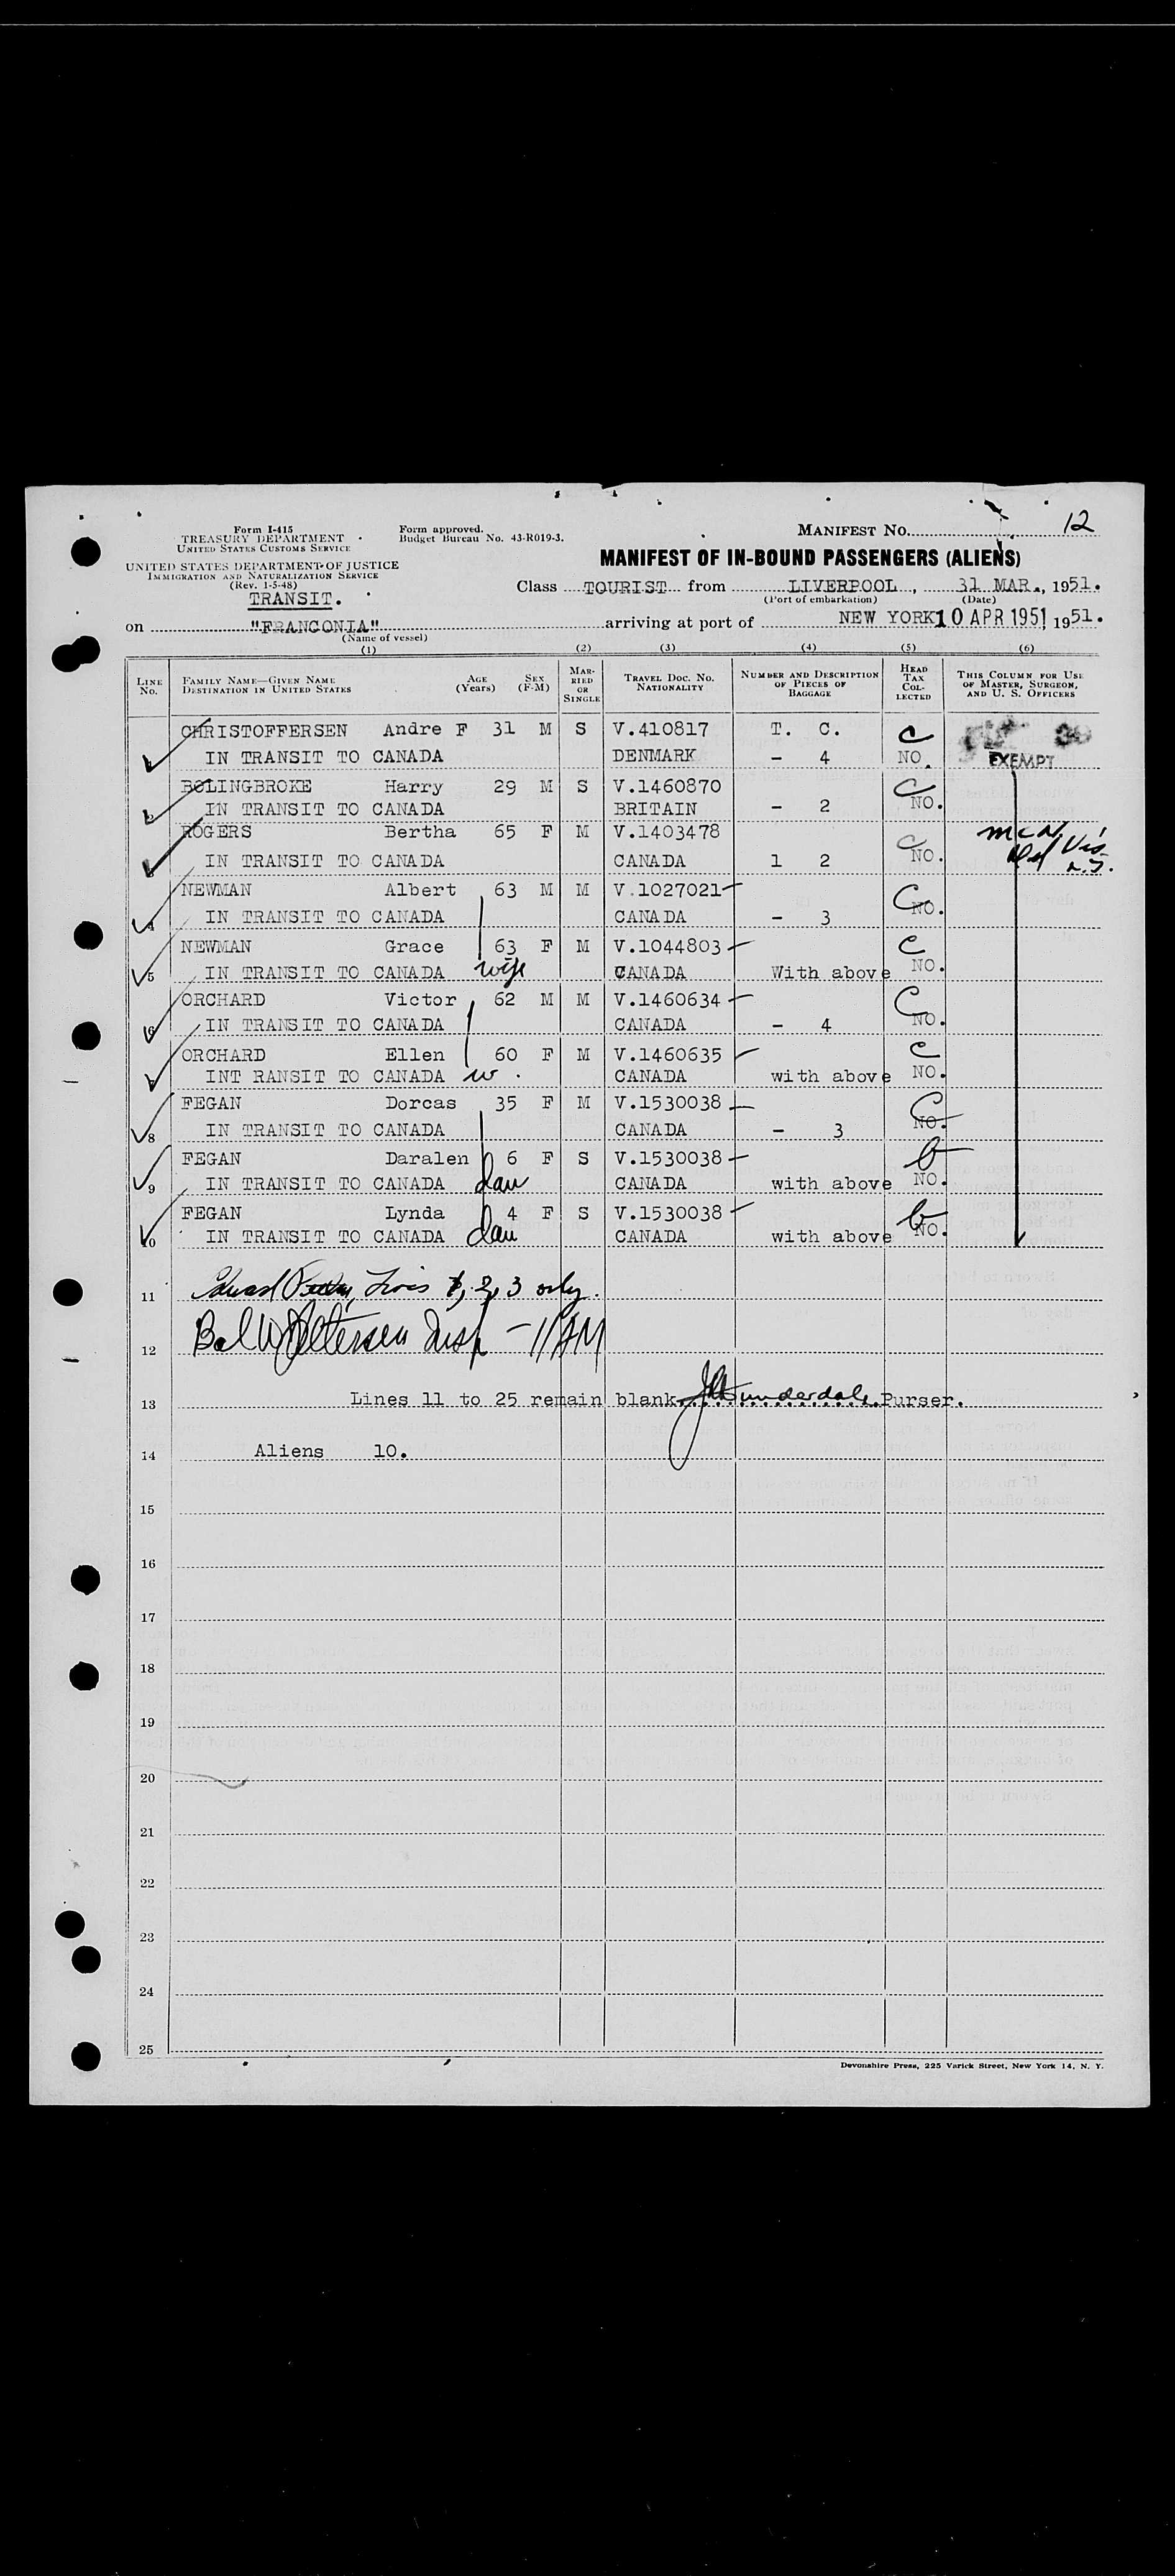 12
Form I-415
TREASURY DEPARTMENT
UNITED STATES CUSTOMS SERVICE
Form approved.
Budget Bureau No. 43-R019-3.
MANIFEST NO.
UNITED STATES DEPARTMENT OF JUSTICE
IMMIGRATION AND NATURALIZATION SERVICE
(Rev. 1-5-48)
MANIFEST OF IN-BOUND PASSENGERS (ALIENS)
TRANSIT.
Class TOURIST from LIVERPOOL, 31 MAR., 1951.
(Port of embarkation) (Date)
on "FRANCONIA" arriving at port of NEW YORK 10 APR 1951 1951.
(Name of vessel)
(1) (2) (3) (4) (5) (6)
LINE NO. FAMILY NAME—GIVEN NAME DESTINATION IN UNITED STATES AGE (Years) SEX (F-M) MARRIED OR SINGLE TRAVEL DOC. NO. NATIONALITY NUMBER AND DESCRIPTION OF PIECES OF BAGGAGE HEAD TAX COLLECTED THIS COLUMN FOR USE OF MASTER, SURGEON, AND U. S. OFFICERS
CHRISTOFFERSEN Andre F 31 M S V.410817 T. C. C
IN TRANSIT TO CANADA DENMARK - 4 NO. EXEMPT
BOLINGBROKE Harry 29 M S V.1460870 C
IN TRANSIT TO CANADA BRITAIN - 2 NO.
ROGERS Bertha 65 F M V.1403478 C
3 IN TRANSIT TO CANADA CANADA 1 2 NO.
NEWMAN Albert 63 M M V.1027021 C
4 IN TRANSIT TO CANADA CANADA - 3 NO.
NEWMAN Grace 63 F M V.1044803 C
5 IN TRANSIT TO CANADA wife CANADA With above NO.
ORCHARD Victor 62 M M V.1460634 C
6 IN TRANSIT TO CANADA CANADA - 4 NO.
ORCHARD Ellen 60 F M V.1460635 C
7 INT RANSIT TO CANADA w. CANADA with above NO.
FEGAN Dorcas 35 F M V.1530038 C
8 IN TRANSIT TO CANADA CANADA - 3 NO.
FEGAN Daralen 6 F S V.1530038 b
9 IN TRANSIT TO CANADA dau CANADA with above NO.
FEGAN Lynda 4 F S V.1530038 b
10 IN TRANSIT TO CANADA dau CANADA with above NO.
11 2, 3 only.
12 Insp - 11 AM
13 Lines 11 to 25 remain blank Sunderdale Purser.
14 Aliens 10.
15
16
17
18
19
20
21
22
23
24
25
Devonshire Press, 225 Varick Street, New York 14, N. Y.